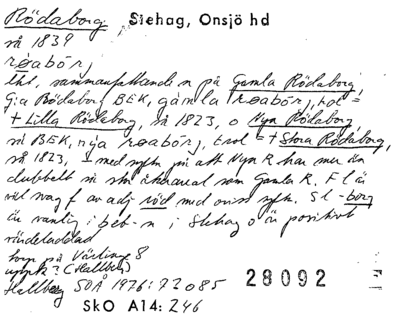 Rödaborg Slehag, Onsjö hd
så 1839
rø̀abòr,
Ths, sammanfattande n på Gamla Rödaborg,
G:a Rödaborg BEK, gàmla røabór, trol =
+ Lilla Rödaborg, så 1823, o Nya Rödaborg
så BEK, nỳa røabór, trol = + Stora Rödaborg,
så 1823, med på att Nya R har mer än
dubbelt så stor åkerareal som Gamla R. F l är
väl svag f av adj röd med syft. S l -borg
är vanlig i beb-n i Slehag o är positivt
värdeladdad
torp på Västinge 8
uppk? (Hallberg)
Hallberg SOÅ 1976: 72 o 85 28092
SkO A14: 246